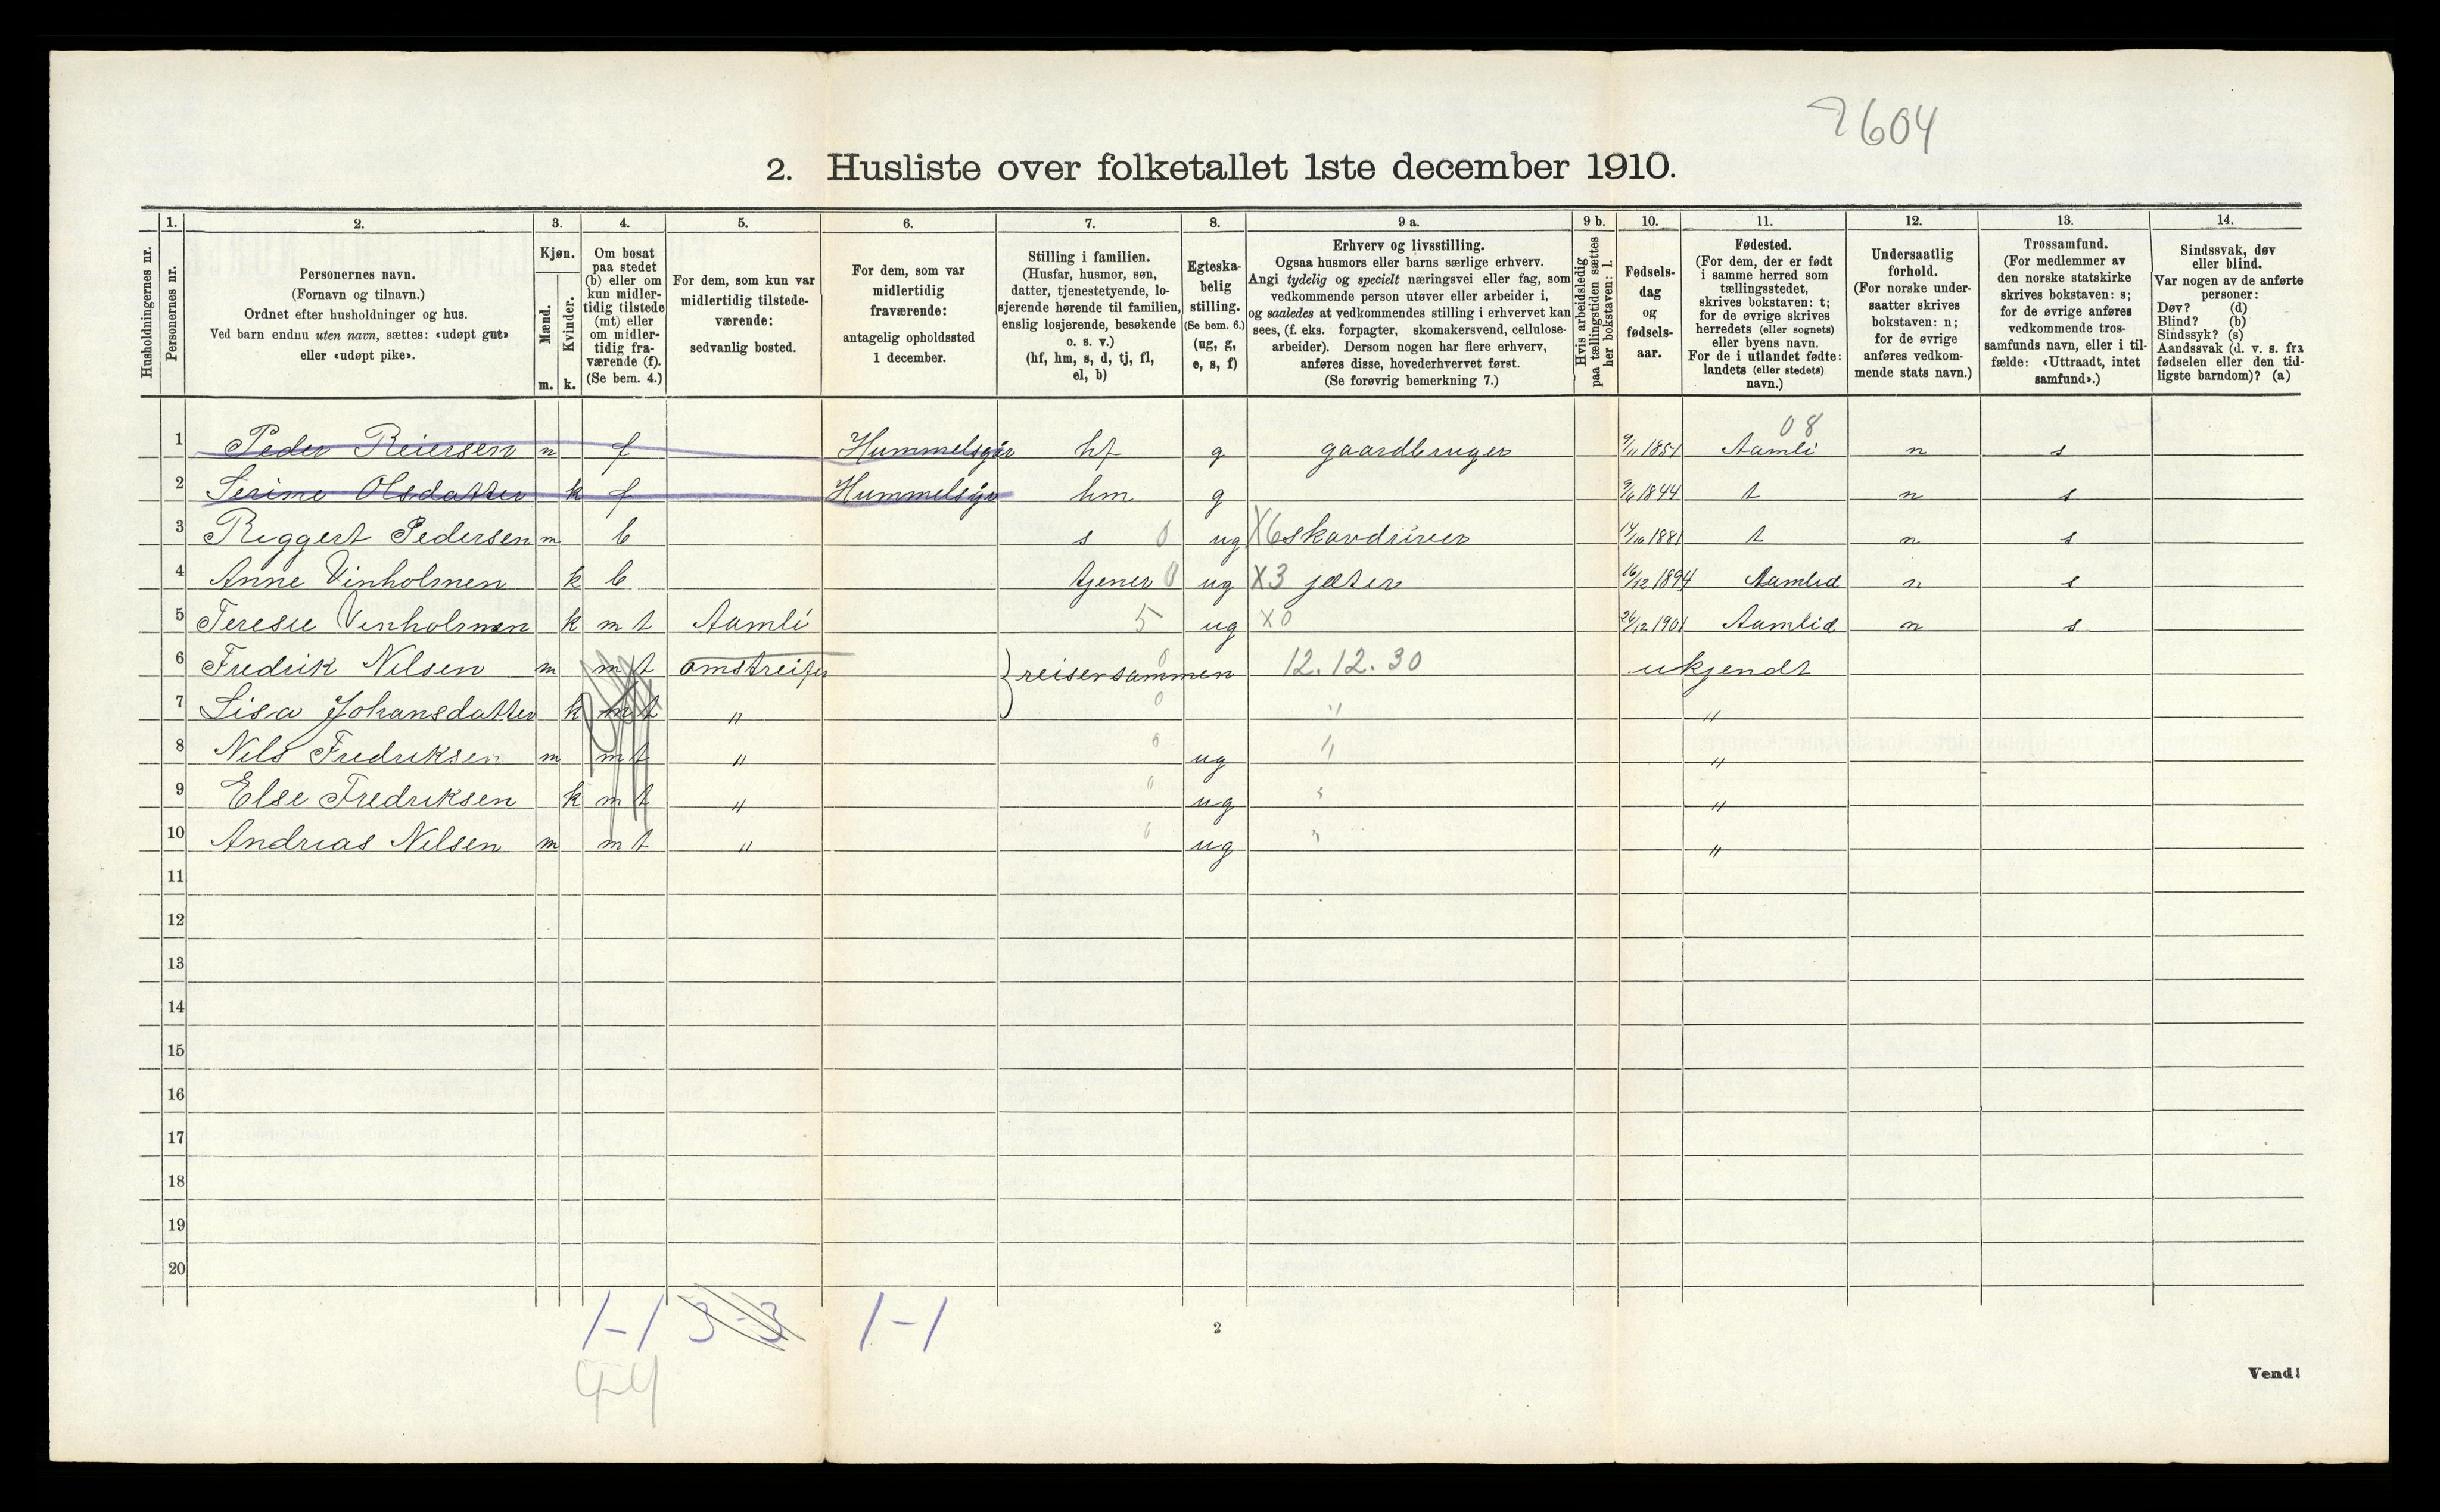 2604
2. Husliste over folketallet 1ste december 1910.
Husholdningernes nr.
1. Personernes nr.
2. Personernes navn. (Fornavn og tilnavn.) Ordnet efter husholdninger og hus. Ved barn endnu uten navn, sættes: «udøpt gut» eller «udøpt pike».
3. Kjøn. Mænd. m. Kvinder. k.
4. Om bosat paa stedet (b) eller om kun midlertidig tilstede (mt) eller om midlertidig fraværende (f). (Se bem. 4.)
5. For dem, som kun var midlertidig tilstedeværende: sedvanlig bosted.
6. For dem, som var midlertidig fraværende: antagelig opholdssted 1 december.
7. Stilling i familien. (Husfar, husmor, søn, datter, tjenestetyende, losjerende hørende til familien, enslig losjerende, besøkende o. s. v.) (hf, hm, s, d, tj, fl, el, b)
8. Egteskabelig stilling. (Se bem. 6.) (ug, g, e, s, f)
9 a. Erhverv og livsstilling. Ogsaa husmors eller barns særlige erhverv. Angi tydelig og specielt næringsvei eller fag, som vedkommende person utøver eller arbeider i, og saaledes at vedkommendes stilling i erhvervet kan sees, (f. eks. forpagter, skomakersvend, cellulosearbeider). Dersom nogen har flere erhverv, anføres disse, hovederhvervet først. (Se forøvrig bemerkning 7.)
9 b. Hvis arbeidsledig paa tællingstiden sættes her bokstaven: l.
10. Fødselsdag og fødselsaar.
11. Fødested. (For dem, der er født i samme herred som tællingsstedet, skrives bokstaven: t; for de øvrige skrives herredets (eller sognets) eller byens navn. For de i utlandet fødte: landets (eller stedets) navn.)
12. Undersaatlig forhold. (For norske undersaatter skrives bokstaven: n; for de øvrige anføres vedkommende stats navn.)
13. Trossamfund. (For medlemmer av den norske statskirke skrives bokstaven: s; for de øvrige anføres vedkommende trossamfunds navn, eller i tilfælde: «Uttraadt, intet samfund».)
14. Sindssvak, døv eller blind. Var nogen av de anførte personer: Døv? (d) Blind? (b) Sindssyk? (s) Aandssvak (d. v. s. fra fødselen eller den tidligste barndom)? (a)
08
1 Peder Reiersen m f Hummelsgjr hf g gaardbruger 9/11 1851 Aamli n s
2 Serine Olsdatter k f Hummelsgjr hm g 9/6 1844 t n s
3 Reggert Pedersen m b s 0 ug X6 skovdriver 14/10 1881 t n s
4 Anne Vinholmen k b tjener 0 ug X3 jæter 16/12 1894 Aamlid n s
5 Teresie Vinholmen k mt Aamli 5 ug X0 26/12 1901 Aamlid n s
6 Fredrik Nilsen m mt omstreifer } reiser sammen 0 12.12.30 ukjendt
7 Lisa Johansdatter k mt " 0 " "
8 Nils Fredriksen m mt " 0 ug " "
9 Else Fredriksen k mt " 0 ug " "
10 Andreas Nilsen m mt " 0 ug " "
11
12
13
14
15
16
17
18
19
20
1-1 3-3 1-1
4-4
2
Vend!